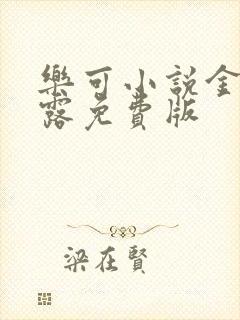 樂可小説金
露免費版
梁在賢